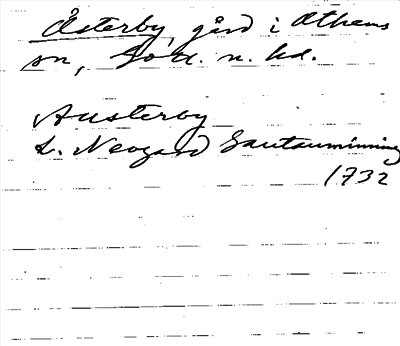 Österby, gård i Athems
sn, Gotl. n. hd.
Austerby
L. Neogard Gautauminning
1732